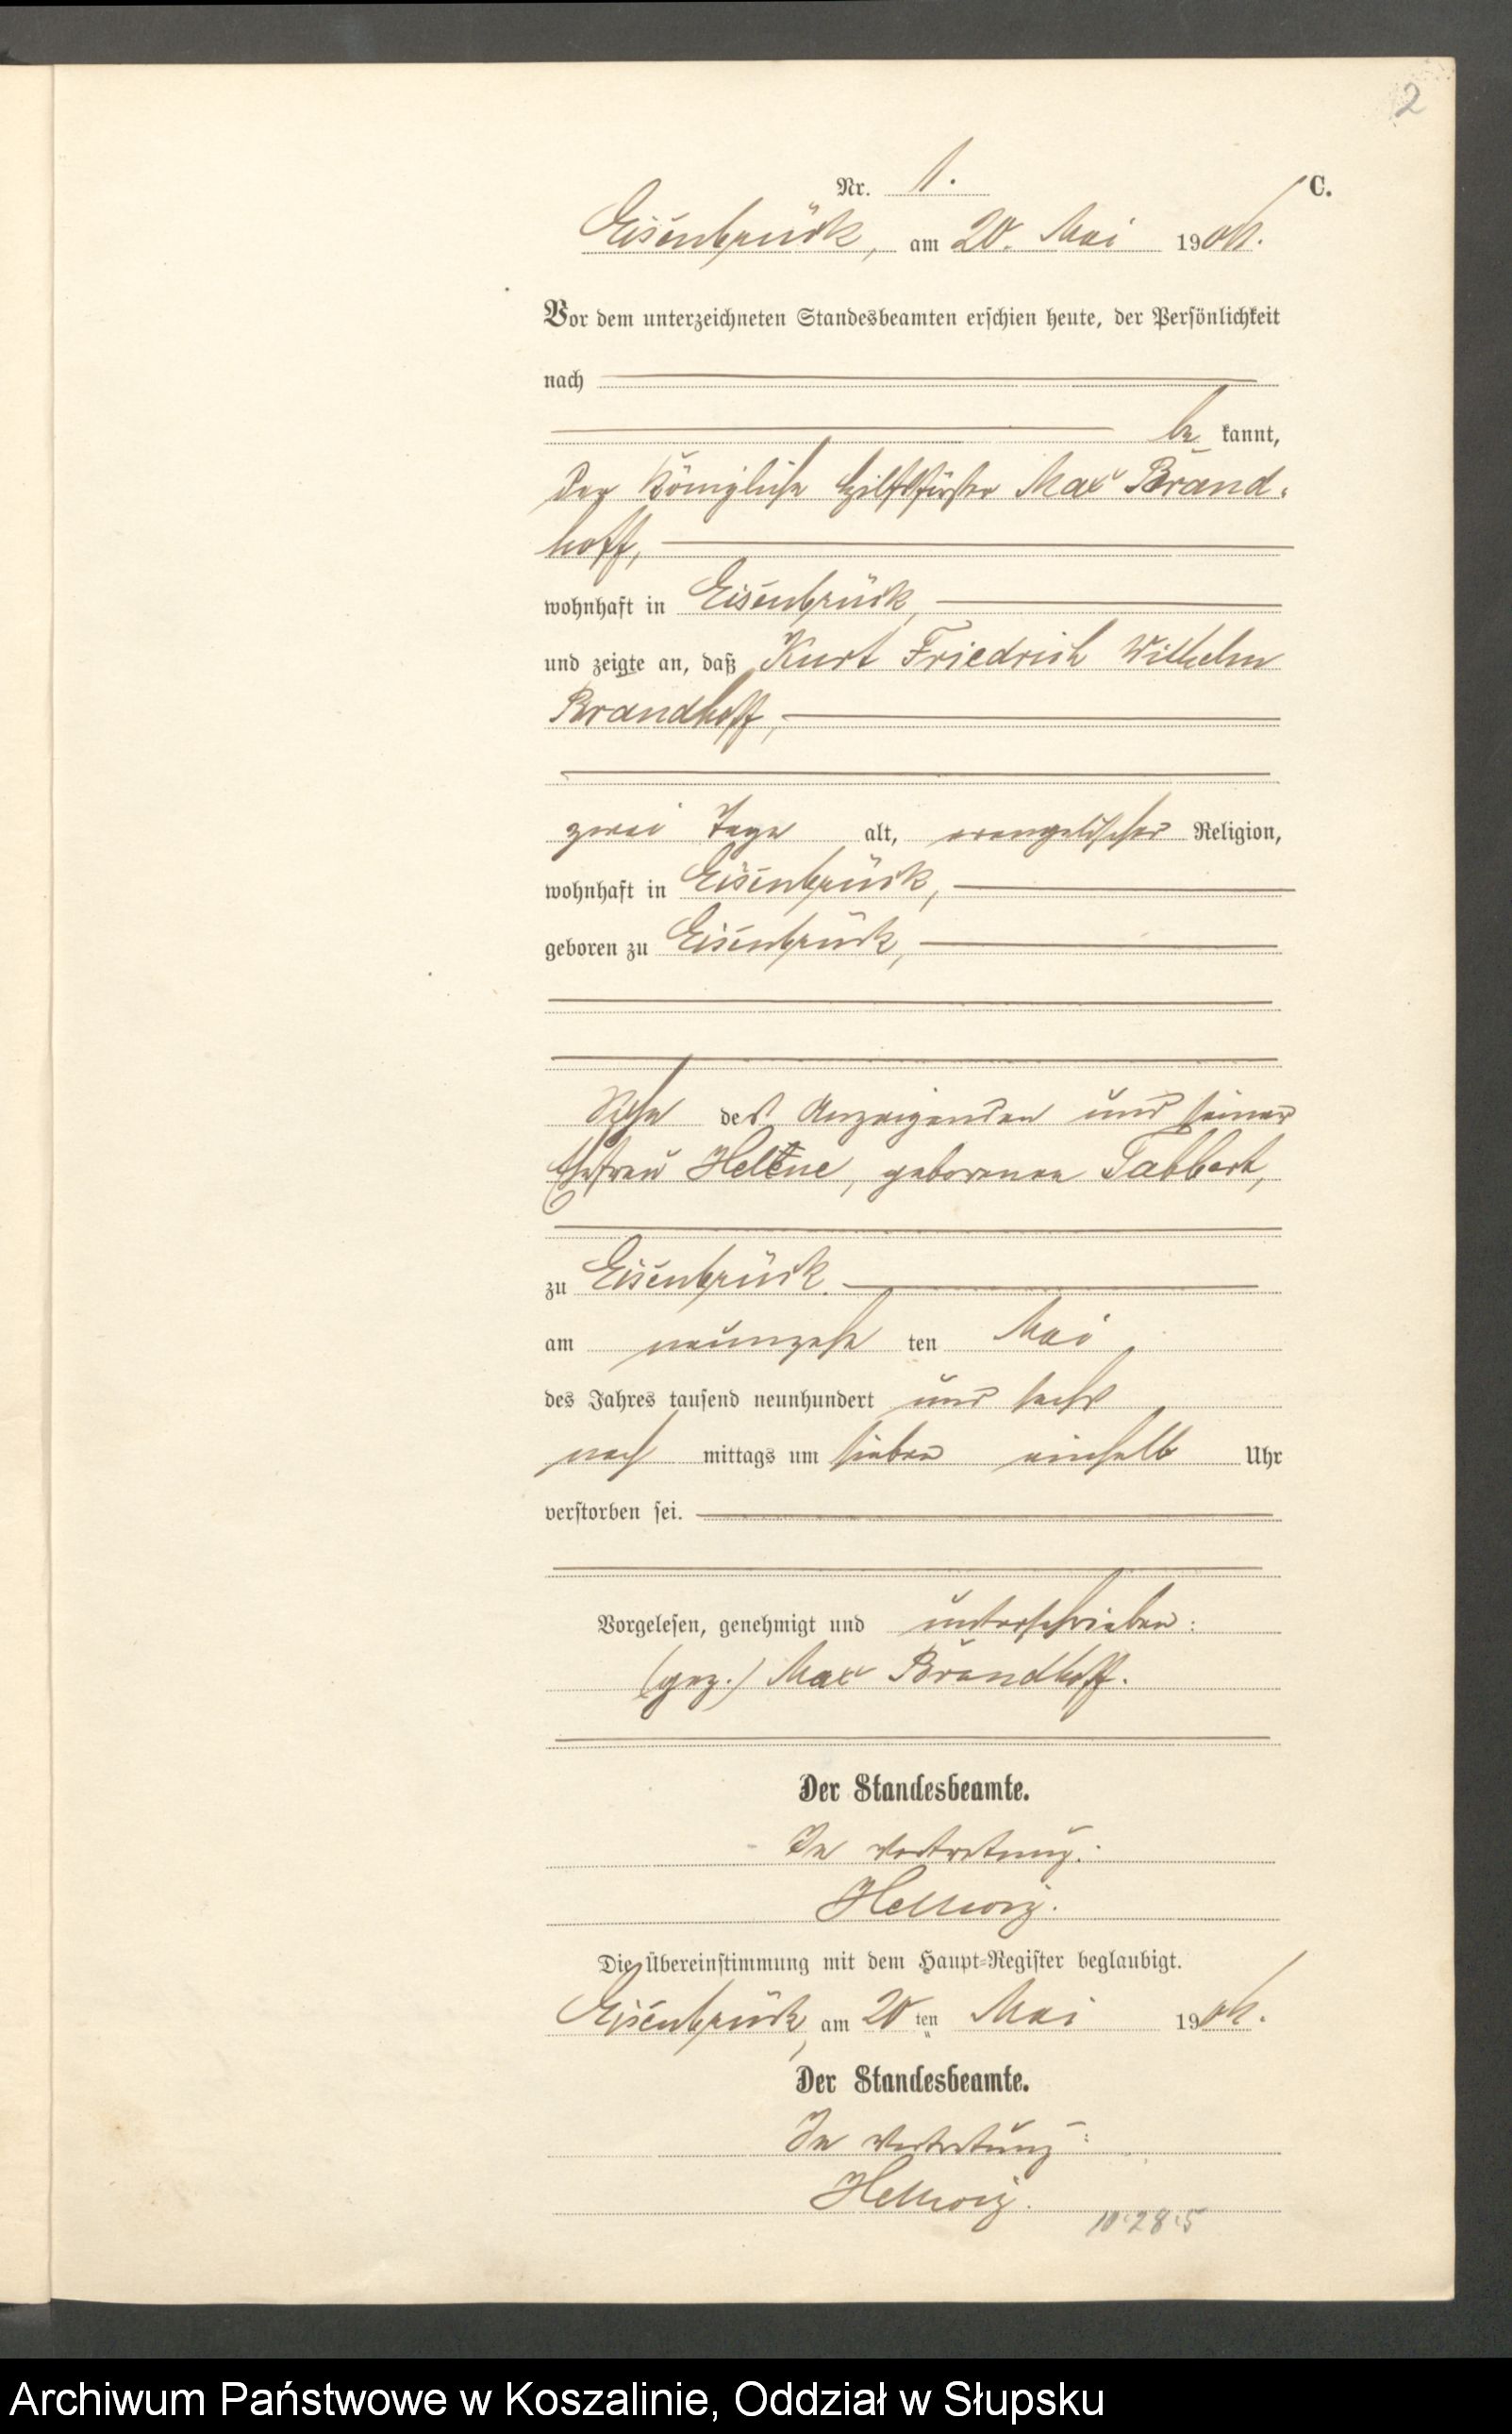 2
Nr. 1.
C.
Eisenbrück, am 20. Mai 1906.
Vor dem unterzeichneten Standesbeamten erschien heute, der Persönlichkeit
nach
be kannt,
der Königliche Hilfsförster Max Brand-
hoff,
wohnhaft in Eisenbrück,
und zeigte an, daß Kurt Friedrich Wilhelm
Brandhoff,
zwei Tage alt, evangelischer Religion,
wohnhaft in Eisenbrück,
geboren zu Eisenbrück,
Sohn des Anzeigenden und seiner
Ehefrau Helene, geborenen Tabbert,
zu Eisenbrück.
am neunzehn ten Mai
des Jahres tausend neunhundert und sechs
nach mittags um sieben einhalb Uhr
verstorben sei.
Vorgelesen, genehmigt und unterschrieben:
(gez.) Max Brandhoff.
Der Standesbeamte.
In Vertretung:
Hellwig.
Die Übereinstimmung mit dem Haupt-Register beglaubigt.
Eisenbrück, am 20 ten Mai 1906.
Der Standesbeamte.
In Vertretung:
Hellwig.
Archiwum Państwowe w Koszalinie, Oddział w Słupsku